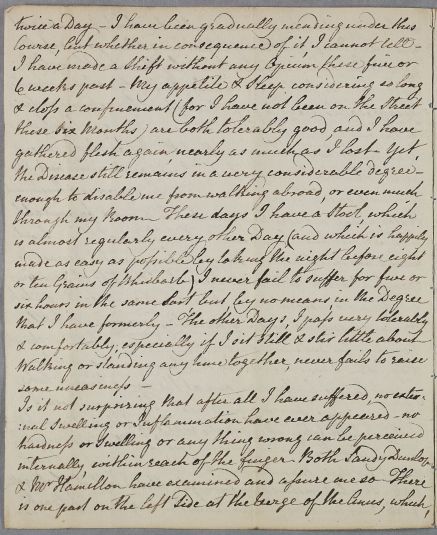 twice a Day – I have been gradually mending under this
Course, but whether in consequence of it I cannot tell –
I have made a Shift without any Opium these five or
6 weeks past – My appetite & Sleep considering so long
& close a confinement (for I have not been on the Street
these Six Months) are both tolerably good and I have
gathered flesh again nearly as much as I lost – Yet
the Disease still remains in a very considerable degree –
enough to disable me from walking abroad, or even much
through my Room – These days I have a Stool, which
is almost regularly every other Day (and which is happily
made as easy as possible by taking the night before eight
or ten Grains of Rhubarb) I never fail to suffer for five or
six hours in the same Sort but by no means in the Degree
that I have formerly – The other Days, I pass very tolerably
& comfortably, especially if I sit Still & stir little about
Walking or standing any time together, never fails to raise
some uneasiness –
Is it not surprizing that after all I have suffered, no exter-
:nal Swelling or Inflammation have ever appeared – no
hardness or Swelling or any thing wrong can be perceived
internally within reach of the finger – Both Sandy Dunlop
& Mr Hamilton have examined and assure me so – There
is one part on the left Side at the Verge of the Anus, which